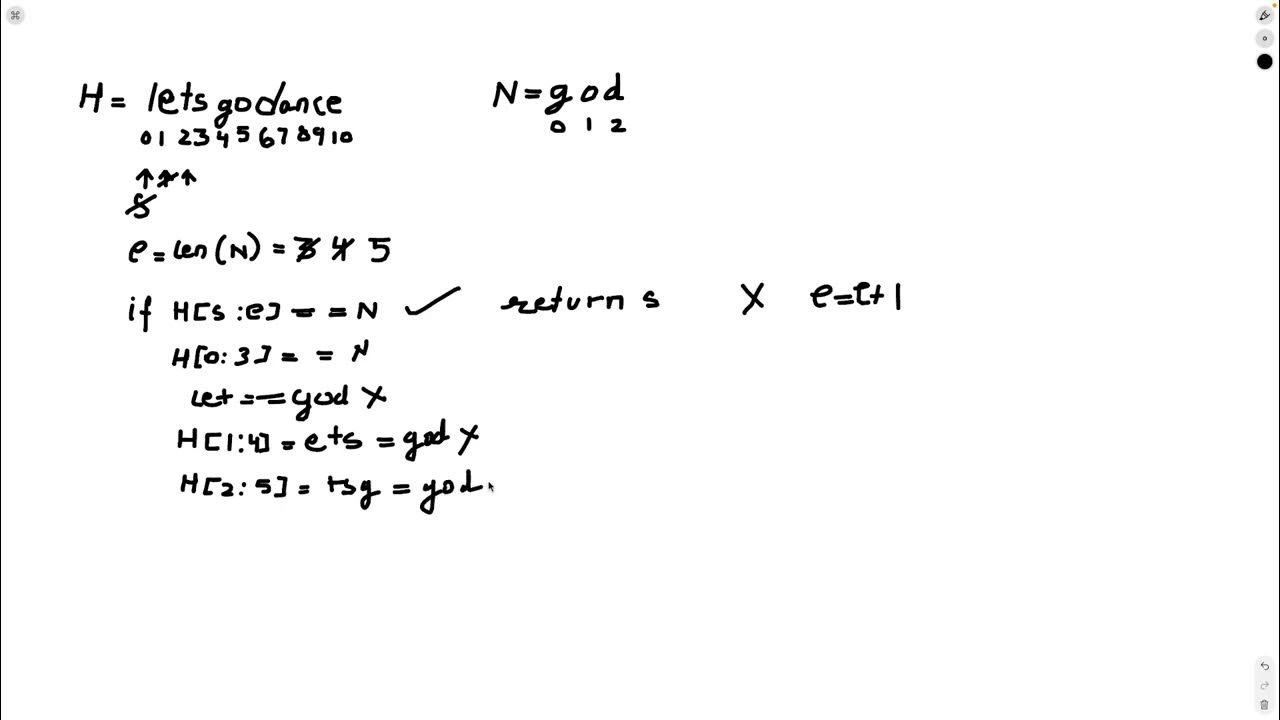 H = letsgodance N = god
0 1 2 3 4 5 6 7 8 9 10 0 1 2
↑ ↑ ↑
S
e = len(N) = 3 4 5
if H[s:e] == N ✓ return s X e=e+1
H[0:3] == N
let == god X
H[1:4] = ets = god X
H[2:5] = tsg = god